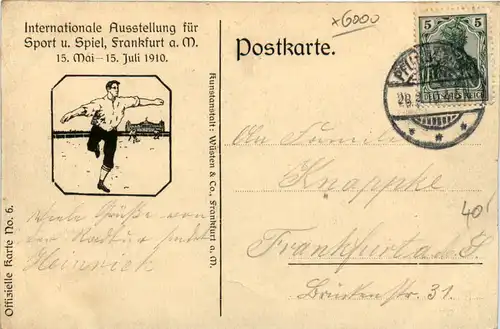 Internationale Ausstellung für
Sport u. Spiel, Frankfurt a. M.
15. Mai – 15. Juli 1910.
Offizielle Karte No. 6.
Kunstanstalt: Wüsten & Co., Frankfurt a. M.
Viele Grüße von
der Radtur sendet
Heinrich
x6000
Postkarte.
5 5
An Familie
Knappke
40
Frankfurt a. d.
Brückenstr. 31.